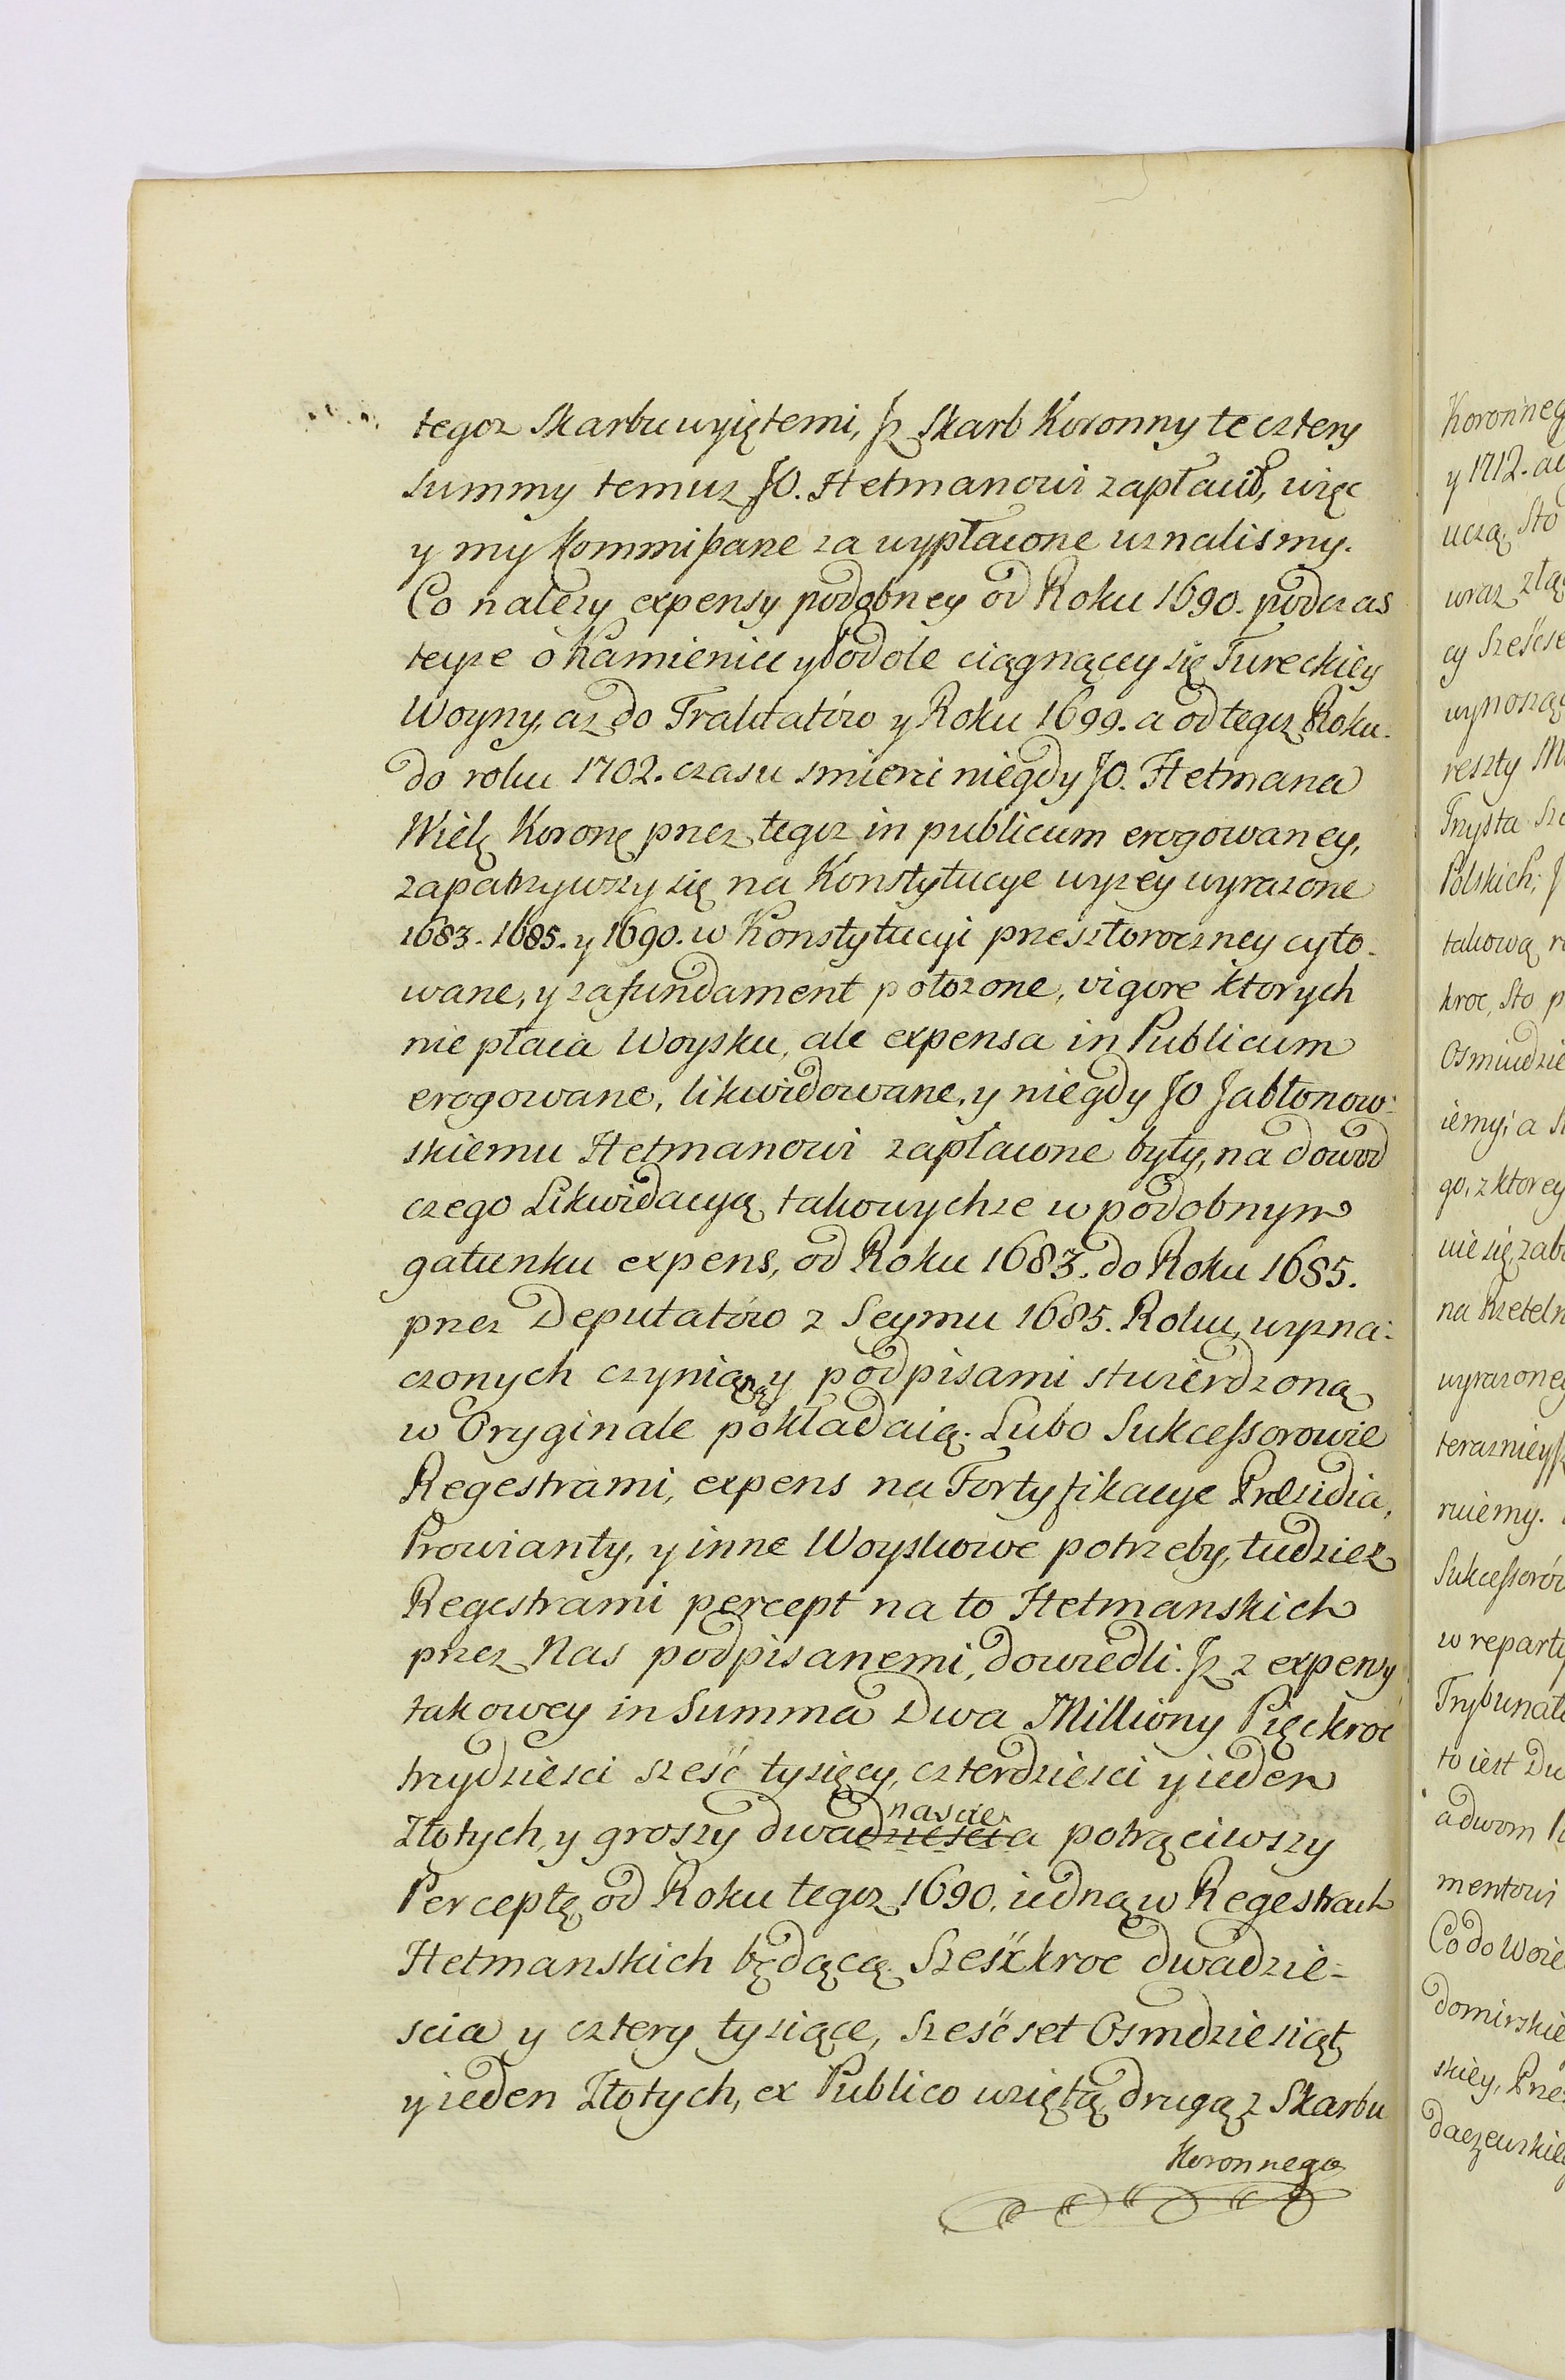 tegoz Skarbu wyiętemi, Jż Skarb Koronny te cztery
summy temuz JO. Hetmanowi zapłacił, więc
y my Kommißarze za wypłacone uznalismy.
Co nalezy expensy podobney od Roku 1690. podczas
teyze o Kamieniec y Podole ciągnącey się Tureckiey
Woyny, az do Traktatów y Roku 1699. a od tegoz Roku
do roku 1702. czasu smierci niegdy JO. Hetmana
Wielg Korong przez tegoz in publicum erogowaney,
zapatrzywszy się na Konstytucye wyzey wyrazone
1683. 1685. y 1690. w Konstytucyi przeszłoroczney cyto-
wane, y za fundament połozone, vigore ktorych
nie płaca Woysku, ale expensa in Publicum
erogowane, likwidowane, y niegdy JO Jabłonow-
skiemu Hetmanowi zapłacone były, na dowod
czego Likwidacyą takowychze w podobnym
gatunku expens, od Roku 1683. do Roku 1685.
przez Deputatów z Seymu 1685. Roku, wyzna-
czonych czynioną y podpisami stwierdzoną
w Oryginale pokładaią. Lubo Sukceßorowie
Regestrami, expens na Fortyfikacye Præsidia,
Prowianty, y inne Woyskowe potrzeby, tudziez
Regestrami percept na to Hetmanskich
przez Nas podpisanemi, dowiedli. Jż z expensy
takowey in Summa Dwa Milliony Pięckroc
trzydziesci sześć tysięcy, czterdziesci y ieden
nascie
Złotych, y groszy dwadziescia potrąciwszy
Perceptę od Roku tegoz 1690. iedną w Regestrach
Hetmanskich będącą Sześćkroc dwadzie-
scia y cztery tysiące, sześćset Osmdziesiąt
y ieden Złotych, ex Publico wziętą, drugą z Skarbu
Koronnego
Koronneg
y 1712.
uczą, Sto
wraz
cy Sześćse
wynosząc
reszty
Trzysta
Polskich,
takową
kroc, Sto
iemy, a
go, z ktorey
nie się
na
wyrazoneg
rwiemy.
w
to iest
a dwom
mentowi
Co do Woie